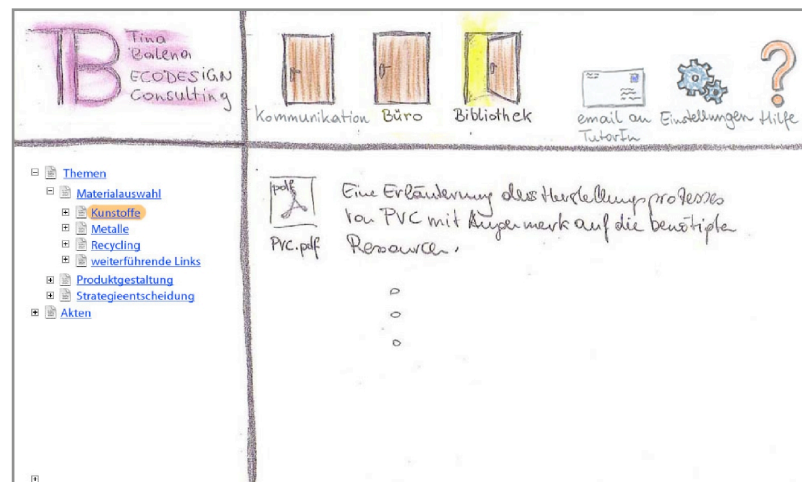 TB
Tina
Balena
ECODESIGN
Consulting
Kommunikation
Büro
Bibliothek
email an
TutorIn
Einstellungen
Hilfe
Themen
Materialauswahl
Kunstoffe
Metalle
Recycling
weiterführende Links
Produktgestaltung
Strategieentscheidung
Akten
pdf
PVC.pdf
Eine Erläuterung des Herstellungsprozesses
von PVC mit Augenmerk auf die benötigten
Ressourcen.